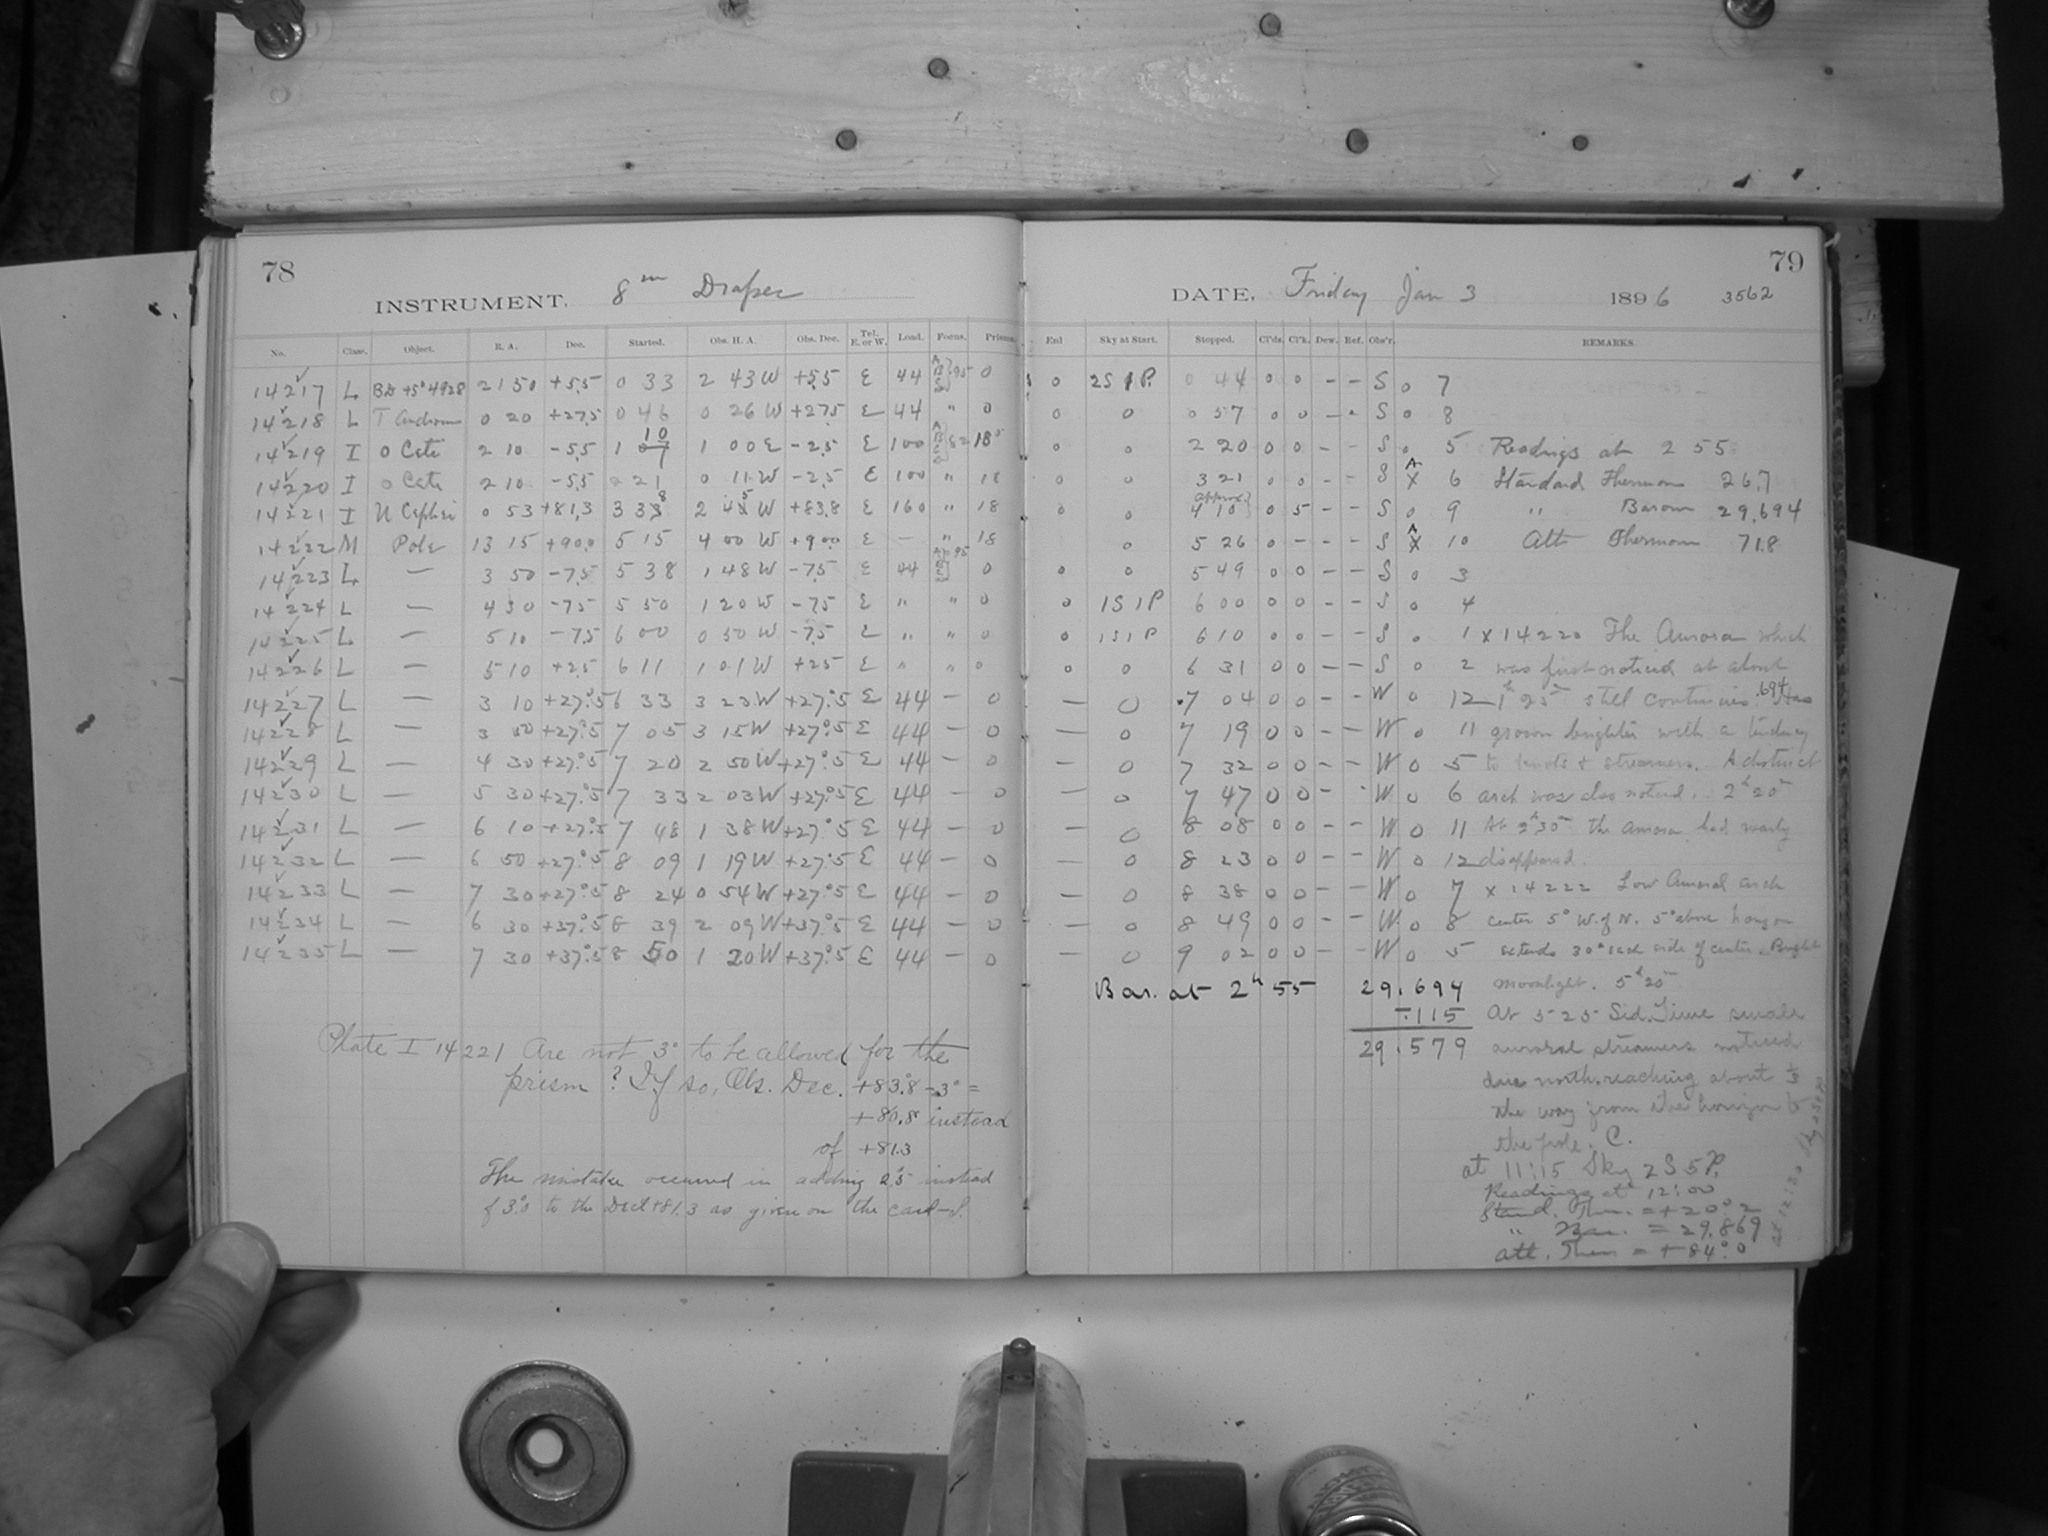 78
INSTRUMENT. 8 in Draper
No. Class. Object. R. A. Dec. Started. Obs. H. A. Obs. Dec. Tel. E. or W. Load. Focus. Prisms.
14217 L BD +5°4928 21 50 +5.5 0 33 2 43 W +5.5 E 44 95 0
14218 L T Androm 0 20 +27.5 0 46 0 26 W +27.5 E 44 " 0
14219 I o Ceti 2 10 -5.5 1 10 1 00 E -2.5 E 100 82 18
14220 I o Ceti 2 10 -5.5 2 21 0 11 W -2.5 E 100 " 18
14221 I U Cephei 0 53 +81.3 3 38 2 45 W +83.8 E 160 " 18
14222 M Pole 13 15 +90.0 5 15 4 00 W +90.0 E — " 18
14223 L — 3 50 -7.5 5 38 1 48 W -7.5 E 44 95 0
14224 L — 4 30 -7.5 5 50 1 20 W -7.5 E " " 0
14225 L — 5 10 -7.5 6 00 0 50 W -7.5 E " " 0
14226 L — 5 10 +2.5 6 11 1 01 W +2.5 E " " 0
14227 L — 3 10 +27°.5 6 33 3 23 W +27°.5 E 44 — 0
14228 L — 3 50 +27°.5 7 05 3 15 W +27°.5 E 44 — 0
14229 L — 4 30 +27°.5 7 20 2 50 W +27°.5 E 44 — 0
14230 L — 5 30 +27°.5 7 33 2 03 W +27°.5 E 44 — 0
14231 L — 6 10 +27°.5 7 48 1 38 W +27°.5 E 44 — 0
14232 L — 6 50 +27°.5 8 09 1 19 W +27°.5 E 44 — 0
14233 L — 7 30 +27°.5 8 24 0 54 W +27°.5 E 44 — 0
14234 L — 6 30 +37°.5 8 39 2 09 W +37°.5 E 44 — 0
14235 L — 7 30 +37°.5 8 50 1 20 W +37°.5 E 44 — 0
Plate I 14221 Are not 3° to be allowed for the
prism? If so, Obs. Dec. +83°.8 - 3° =
+80.8 instead
of +81.3
The mistake occurred in adding 2.5 instead
of 3.0 to the Decl +81.3 as given on the card—S.
79
DATE. Friday Jan 3 1896 3562
Enl Sky at Start. Stopped. Cl'ds. Cl'k. Dew. Ref. Obs'r. REMARKS.
0 2S 1P. 0 44 0 0 - - S 0 7
0 0 0 57 0 0 - - S 0 8
0 0 2 20 0 0 - - S 0 5 Readings at 2 55
0 0 3 21 0 0 - - S A X 6 Standard Thermom 26.7
0 0 approx. 4 10 0 5 - - S 0 9 " Barom 29.694
0 5 26 0 - - - S A X 10 Att Thermom 71.8
0 0 5 49 0 0 - - S 0 3
0 1S 1P 6 00 0 0 - - S 0 4
0 1S 1P 6 10 0 0 - - S 0 1 x 14220 The Aurora which
0 0 6 31 0 0 - - S 0 2 was first noticed at about
— 0 7 04 0 0 - - W 0 12 1h 25m still continues. .694 Has
— 0 7 19 0 0 - - W 0 11 grown brighter with a tendency
— 0 7 32 0 0 - - W 0 5 to knots + streamers. A distinct
— 0 7 47 0 0 - - W 0 6 arch was also noticed. 2h 20m
— 0 8 08 0 0 - - W 0 11 At 2h 30m the aurora had nearly
— 0 8 23 0 0 - - W 0 12 disappeared.
— 0 8 38 0 0 - - W 0 7 x 14222 Low Auroral arch
— 0 8 49 0 0 - - W 0 8 center 5° W. of N. 5° above horizon
— 0 9 02 0 0 - - W 0 5 extends 30° each side of center. Bright
Bar. at 2h 55 29.694 moonlight. 5h 20m
-.115 At 5 25 Sid. Time small
29.579 auroral streamers noticed
due north reaching about 1/3
the way from the horizon to
the pole. C.
at 11:15 Sky 2S 5P.
Readings at 12:00
Stand. Ther. = +20°.2
" Bar. = 29.869
att. Ther = +84°.0
at 12:30 Sky